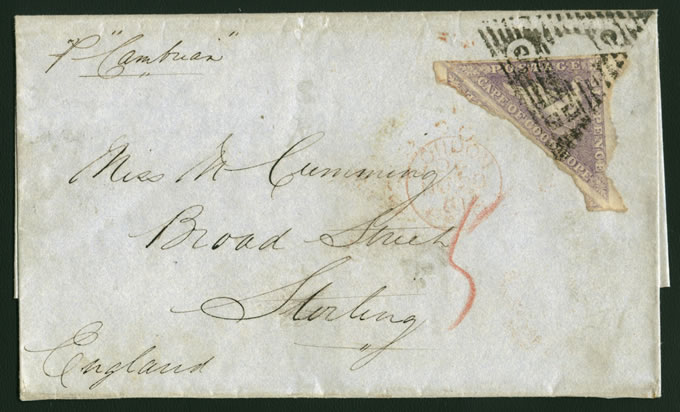 P "Cambrian"
POSTAGE
CAPE OF GOOD HOPE
PENCE
Miss M Cumming
Broad Street
Sterling
England
5